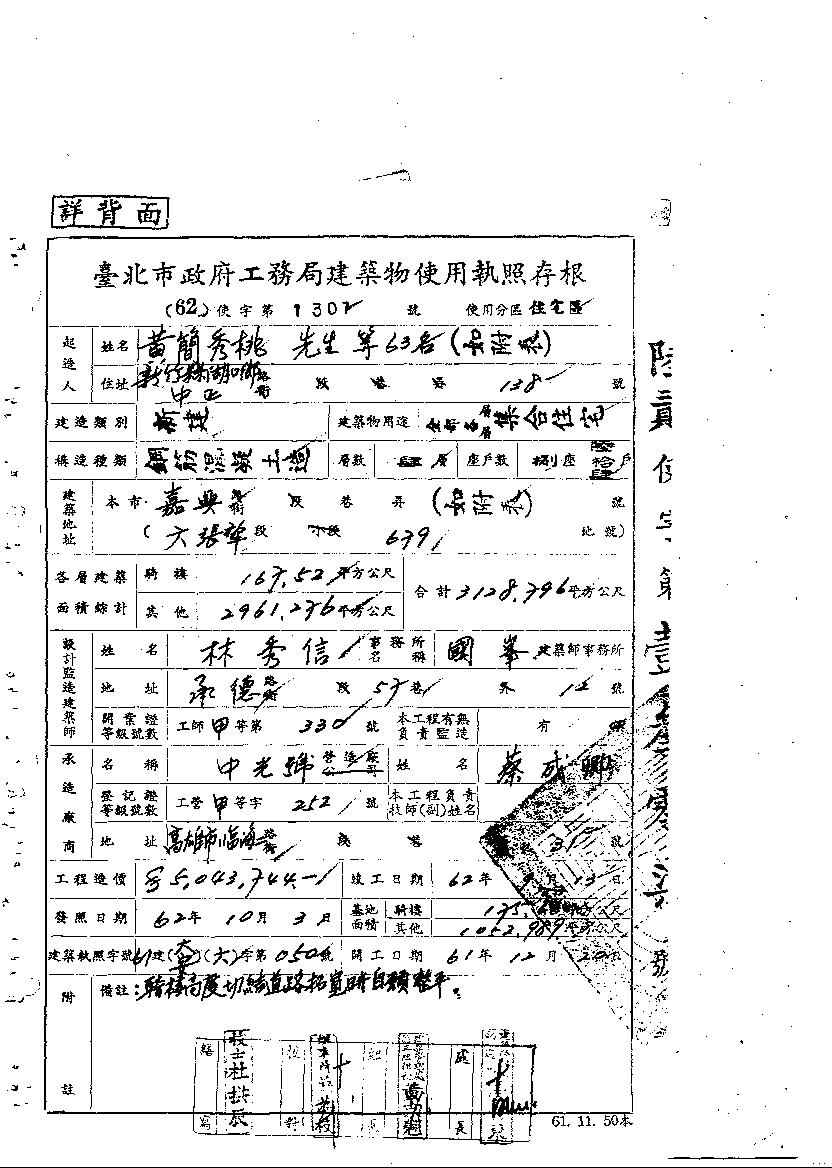 詳背面
臺北市政府工務局建築物使用執照存根
(62)使字第1302號 使用分區 住宅區
起造人 姓名 黃簡秀桃 先生等63名(如附表)
住址 新竹縣湖口鄉中正路街 段巷弄 138 號
建造類別 新建 建築物用途 全部各層集合住宅
構造種類 鋼筋混凝土造 層數 四層 座戶數 捌座 戶
建築地址 本市 嘉興路街 段巷弄 (如附表) 號
(六張犁段 小段 639 地號)
各層建築面積綜計 騎樓 167.52平方公尺 合計 3128.796平方公尺
其他 2961.276平方公尺
設計監造建築師 姓名 林秀信 事務所名稱 國峯 建築師事務所
地址 承德路街 段 57巷 弄 12號
開業證等級號數 工師甲等第 330 號 本工程有無負責監造 有
承造廠商 名稱 中光號 營造廠公司 姓名 蔡成
登記證等級號數 工營甲等字 252 號 本工程負責技師(副)姓名
地址 高雄市臨海路街 段 號
工程造價 5,043,744.- 竣工日期 62年 月 13日
發照日期 62年10月3日 基地面積 騎樓 平方公尺
其他 1052.989平方公尺
建築執照字號 61建(六)字第050號 開工日期 61年12月20日
附註 備註:騎樓高度切結道路拓寬時自願整平。
繕寫 技士杜拱辰 校對 組長 處長
61.11.50本